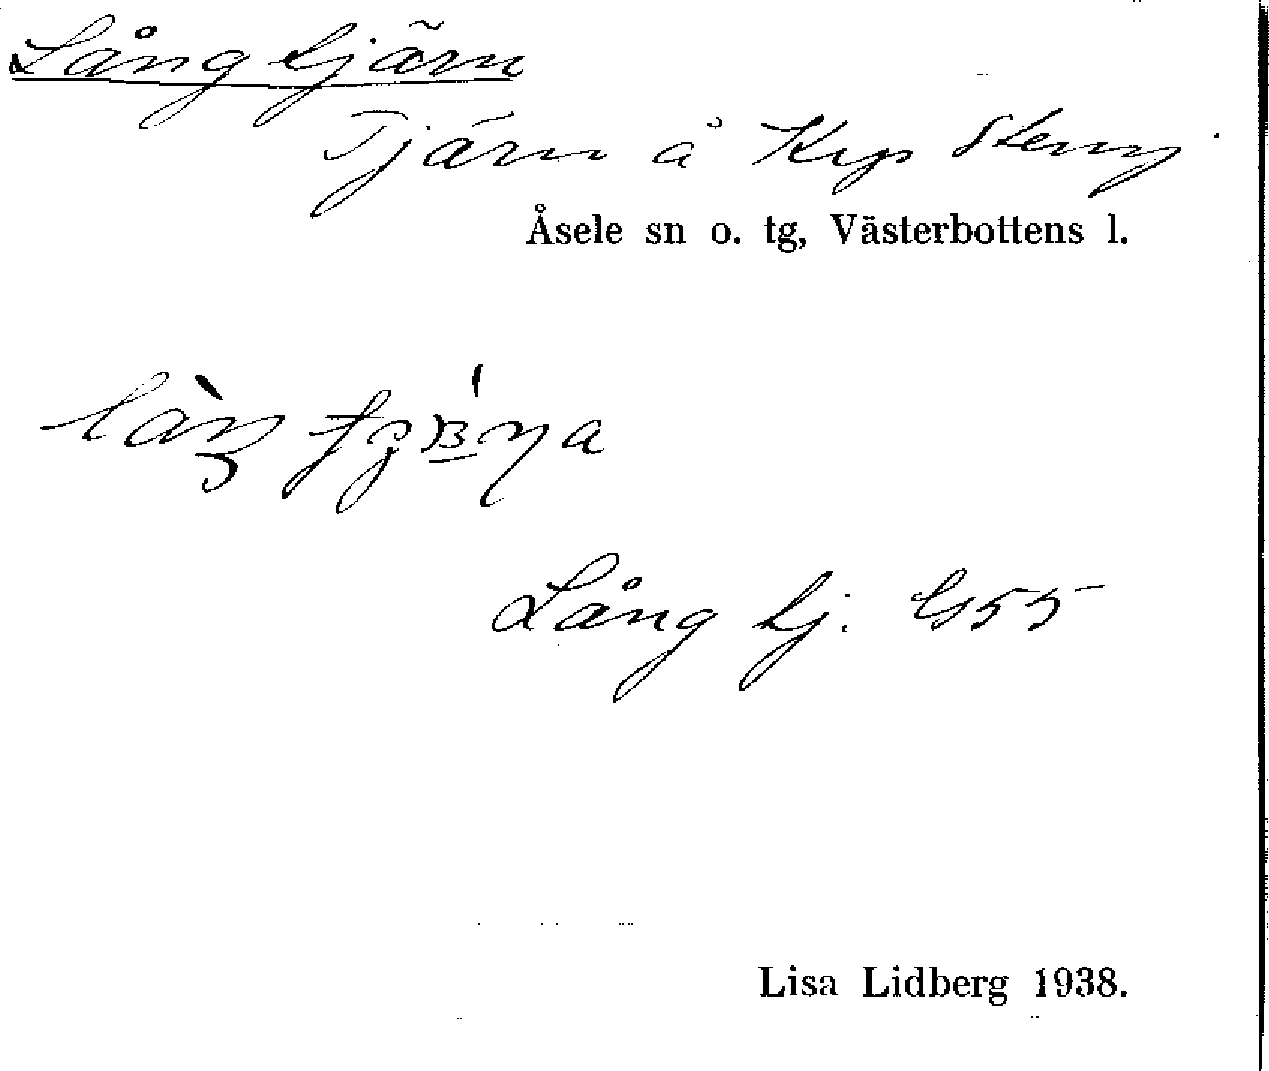 Långtjärn
Tjärn å Krp Stenn
Åsele sn o. tg, Västerbottens l.
Långtj. G55
Lisa Lidberg 1938.